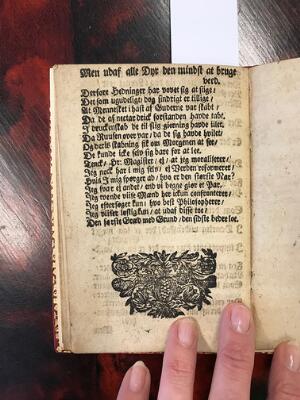 Men udaf alle Dyr den mindst at bruge
verd.
Derfore Hedninger har vovet sig at sige/
Det som ugudeligt dog sindrigt er tillige/
At Mennisket i hast af Guderne var skabt/
Da de af nectar drick forstanden hafde tabt,
I druckenskab de til slig gierning hafde lilet,
Da Ruusen over var/ da de sig hafde hvilet/
Og deris skabning fik om Morgenen at see,
De kunde icke lade sig bare for at lee.
Tenck/ Hr: Magister/ ej/ at jeg moraliserer/
Jeg neck har i mig selv/ ej Verden reformerer/
I mig spørger ad/ hvo er den største Nar?
Jeg svar ej andet/ end vi begge giør et Par.
Jeg vende viise Mænd har ickun confronteret/
Jeg eftersøger kun/ hvo best Philosopherer/
Jeg viiser lystig kun/ at udaf disse toe/
Den første Græd med Grund/ den sidste bedre loe.